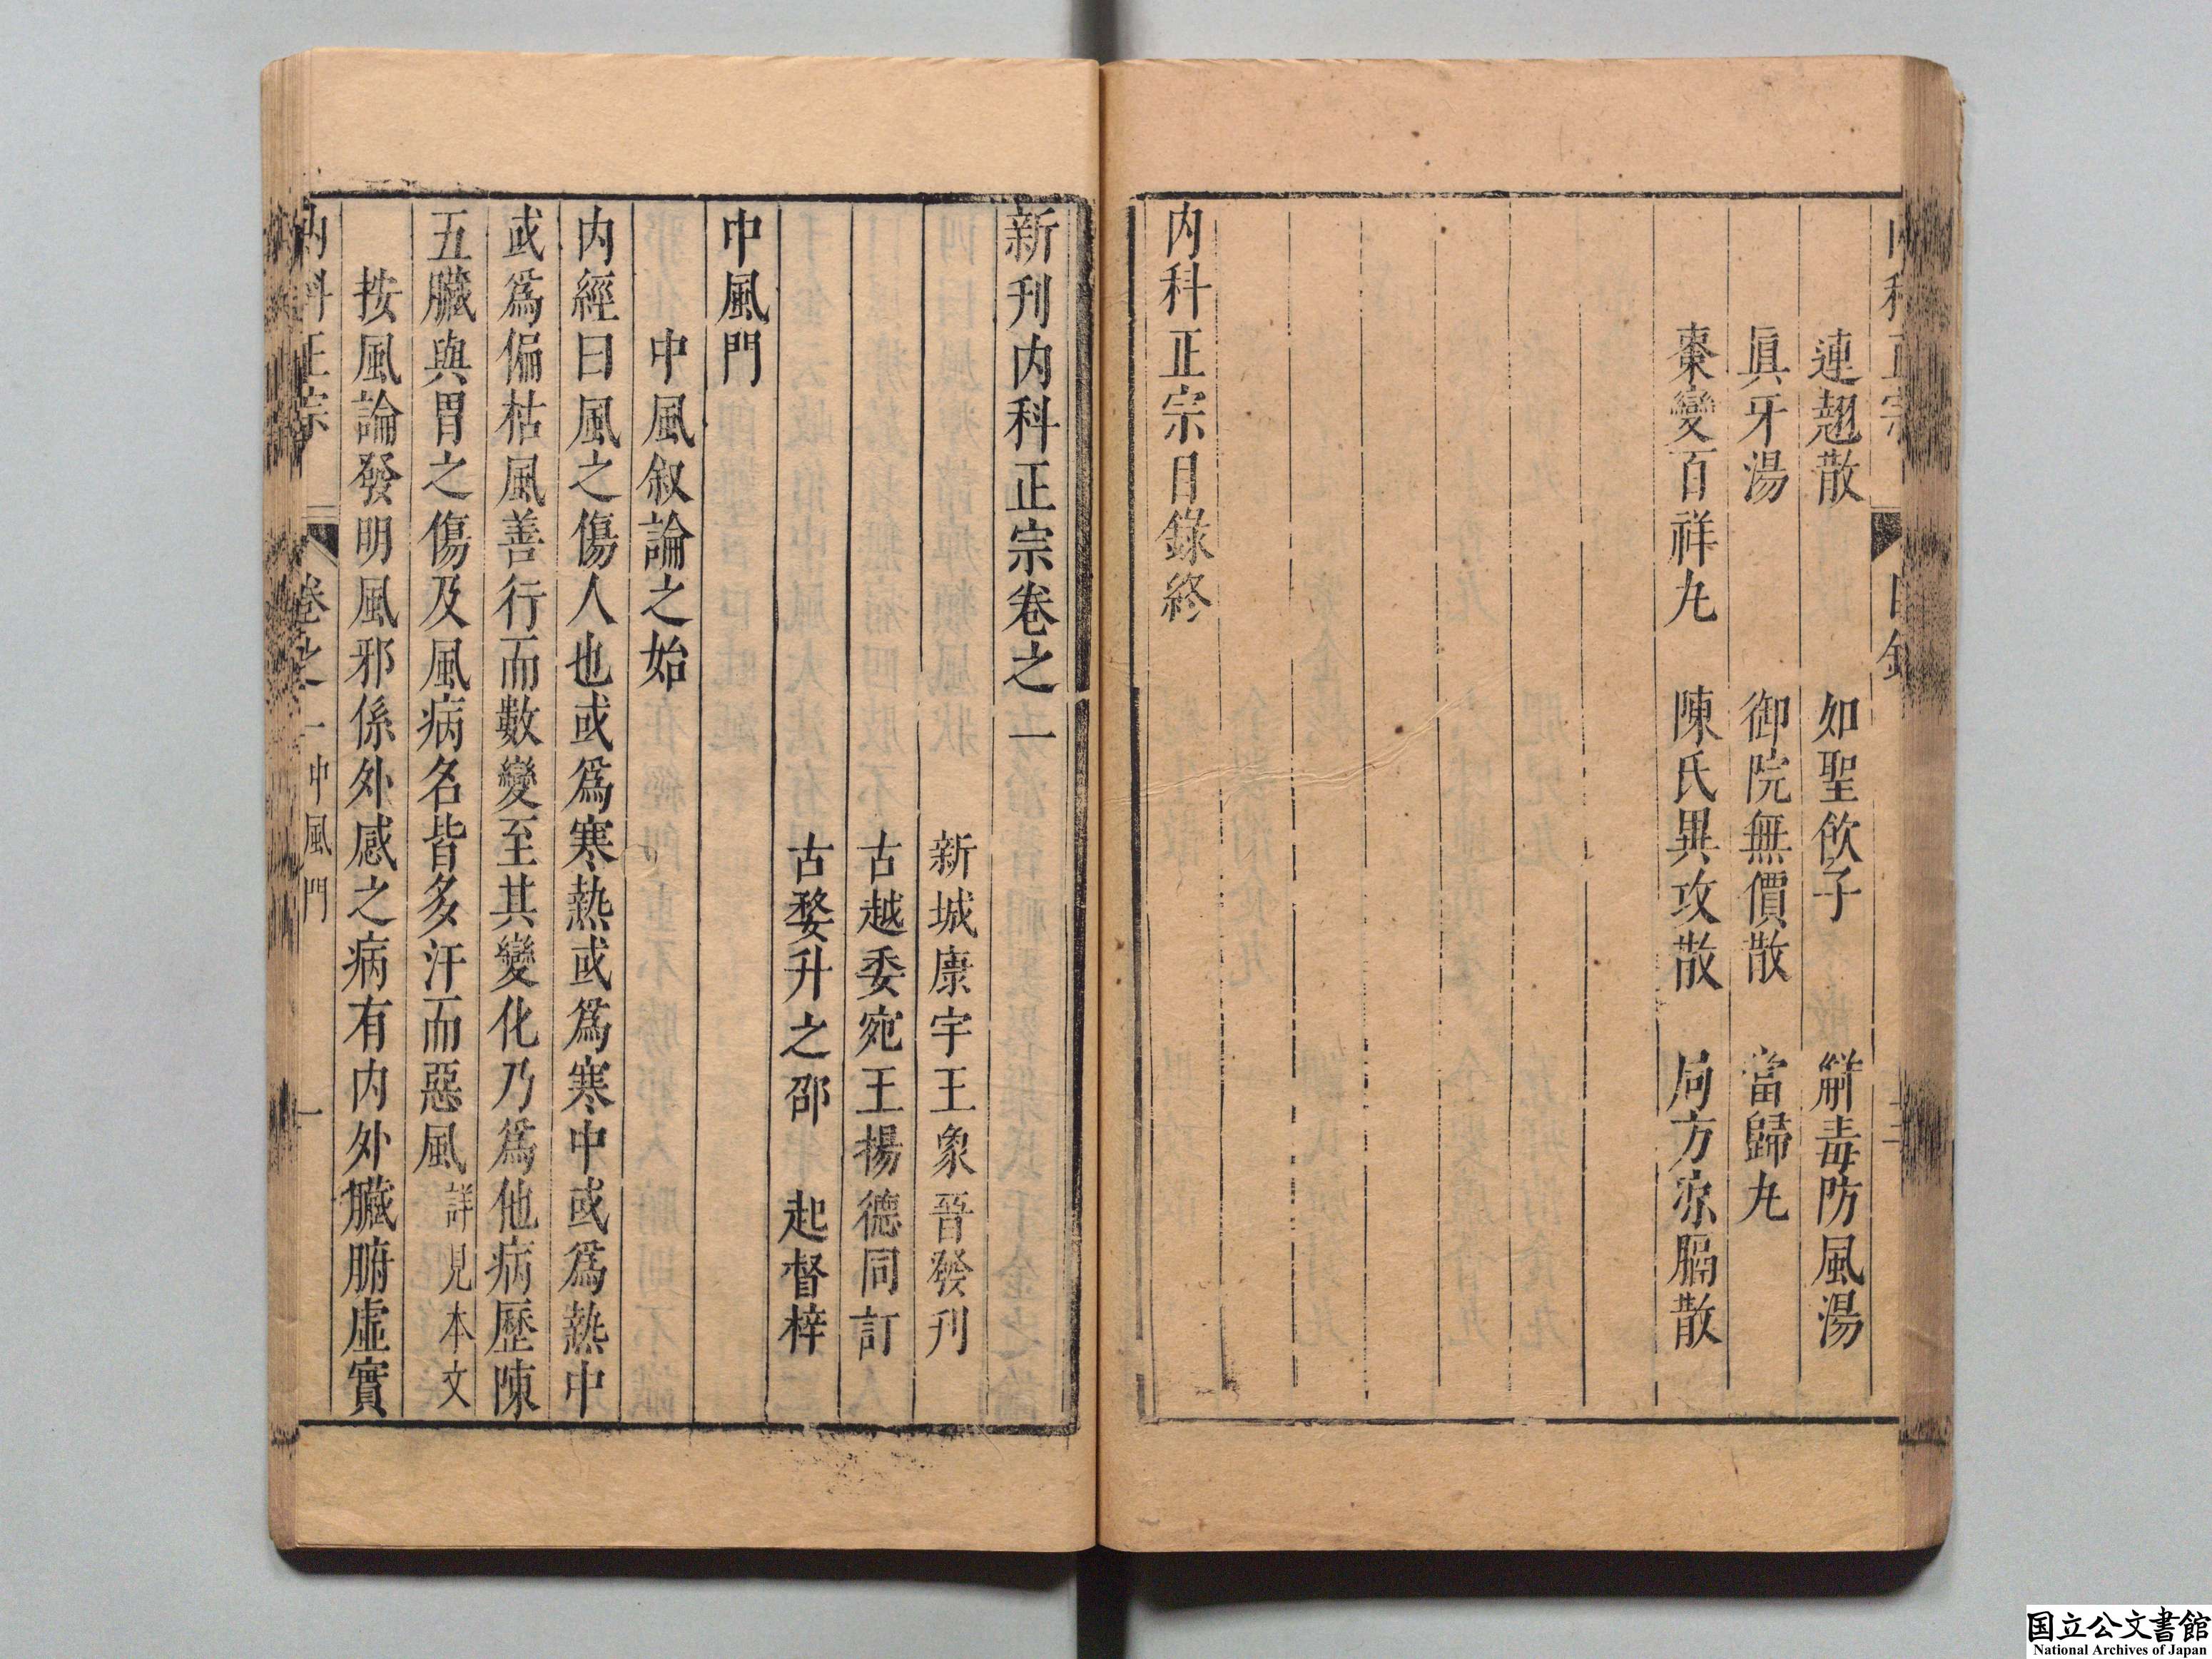 連翹散 如聖飲子 觧毒防風湯
眞牙湯 御院無價散 當歸九
棗變百祥九 陳氏異攻散 局方凉膈散
内科正宗目錄終
新刊内科正宗卷之一
新城康宇王象晉發刊
古越委宛王揚德同訂
古婺升之邵 起督梓
中風門
中風叙論之始
内經曰風之傷人也或爲寒熱或爲寒中或爲熱中
或爲偏枯風善行而數變至其變化乃爲他病歷陳
五臟與胃之傷及風病名皆多汗而惡風詳見本文
按風論發明風邪係外感之病有内外臟腑虛實
内科正宗 卷之一中風門 一
国立公文書館
National Archives of Japan